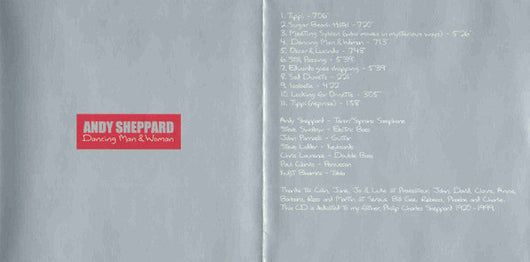 ANDY SHEPPARD
Dancing Man & Woman
1. Tippi - 7'06"
2. Sugar Beach Hotel - 7'20"
3. Meeting Sylvan (god moves in mysterious ways) - 5'26"
4. Dancing Man & Woman - 7'13"
5. Oscar & Lucinda - 7'48"
6. Still Passing - 5'39
7. Eduardo goes shopping - 5'39
8. Sad Duvets - 2'21
9. Isabella - 4'22"
10. Looking for Ornette - 3'05"
11. Tippi (reprise) - 1'58"
Andy Sheppard - Tenor/Soprano Saxophone
Steve Swallow - Electric Bass
John Parricelli - Guitar
Steve Lodder - Keyboards
Chris Laurence - Double Bass
Paul Clarvis - Percussion
Kuljit Bhamra - Tabla
Thanks to Colin, Jane, Jo & Luke at Provocateur, John, David, Claire, Annie,
Barbara, Ross and Martin at Serious. Bill Gee. Rebecca, Phoebe and Charlie.
This CD is dedicated to my father, Philip Charles Sheppard 1920 - 1999.